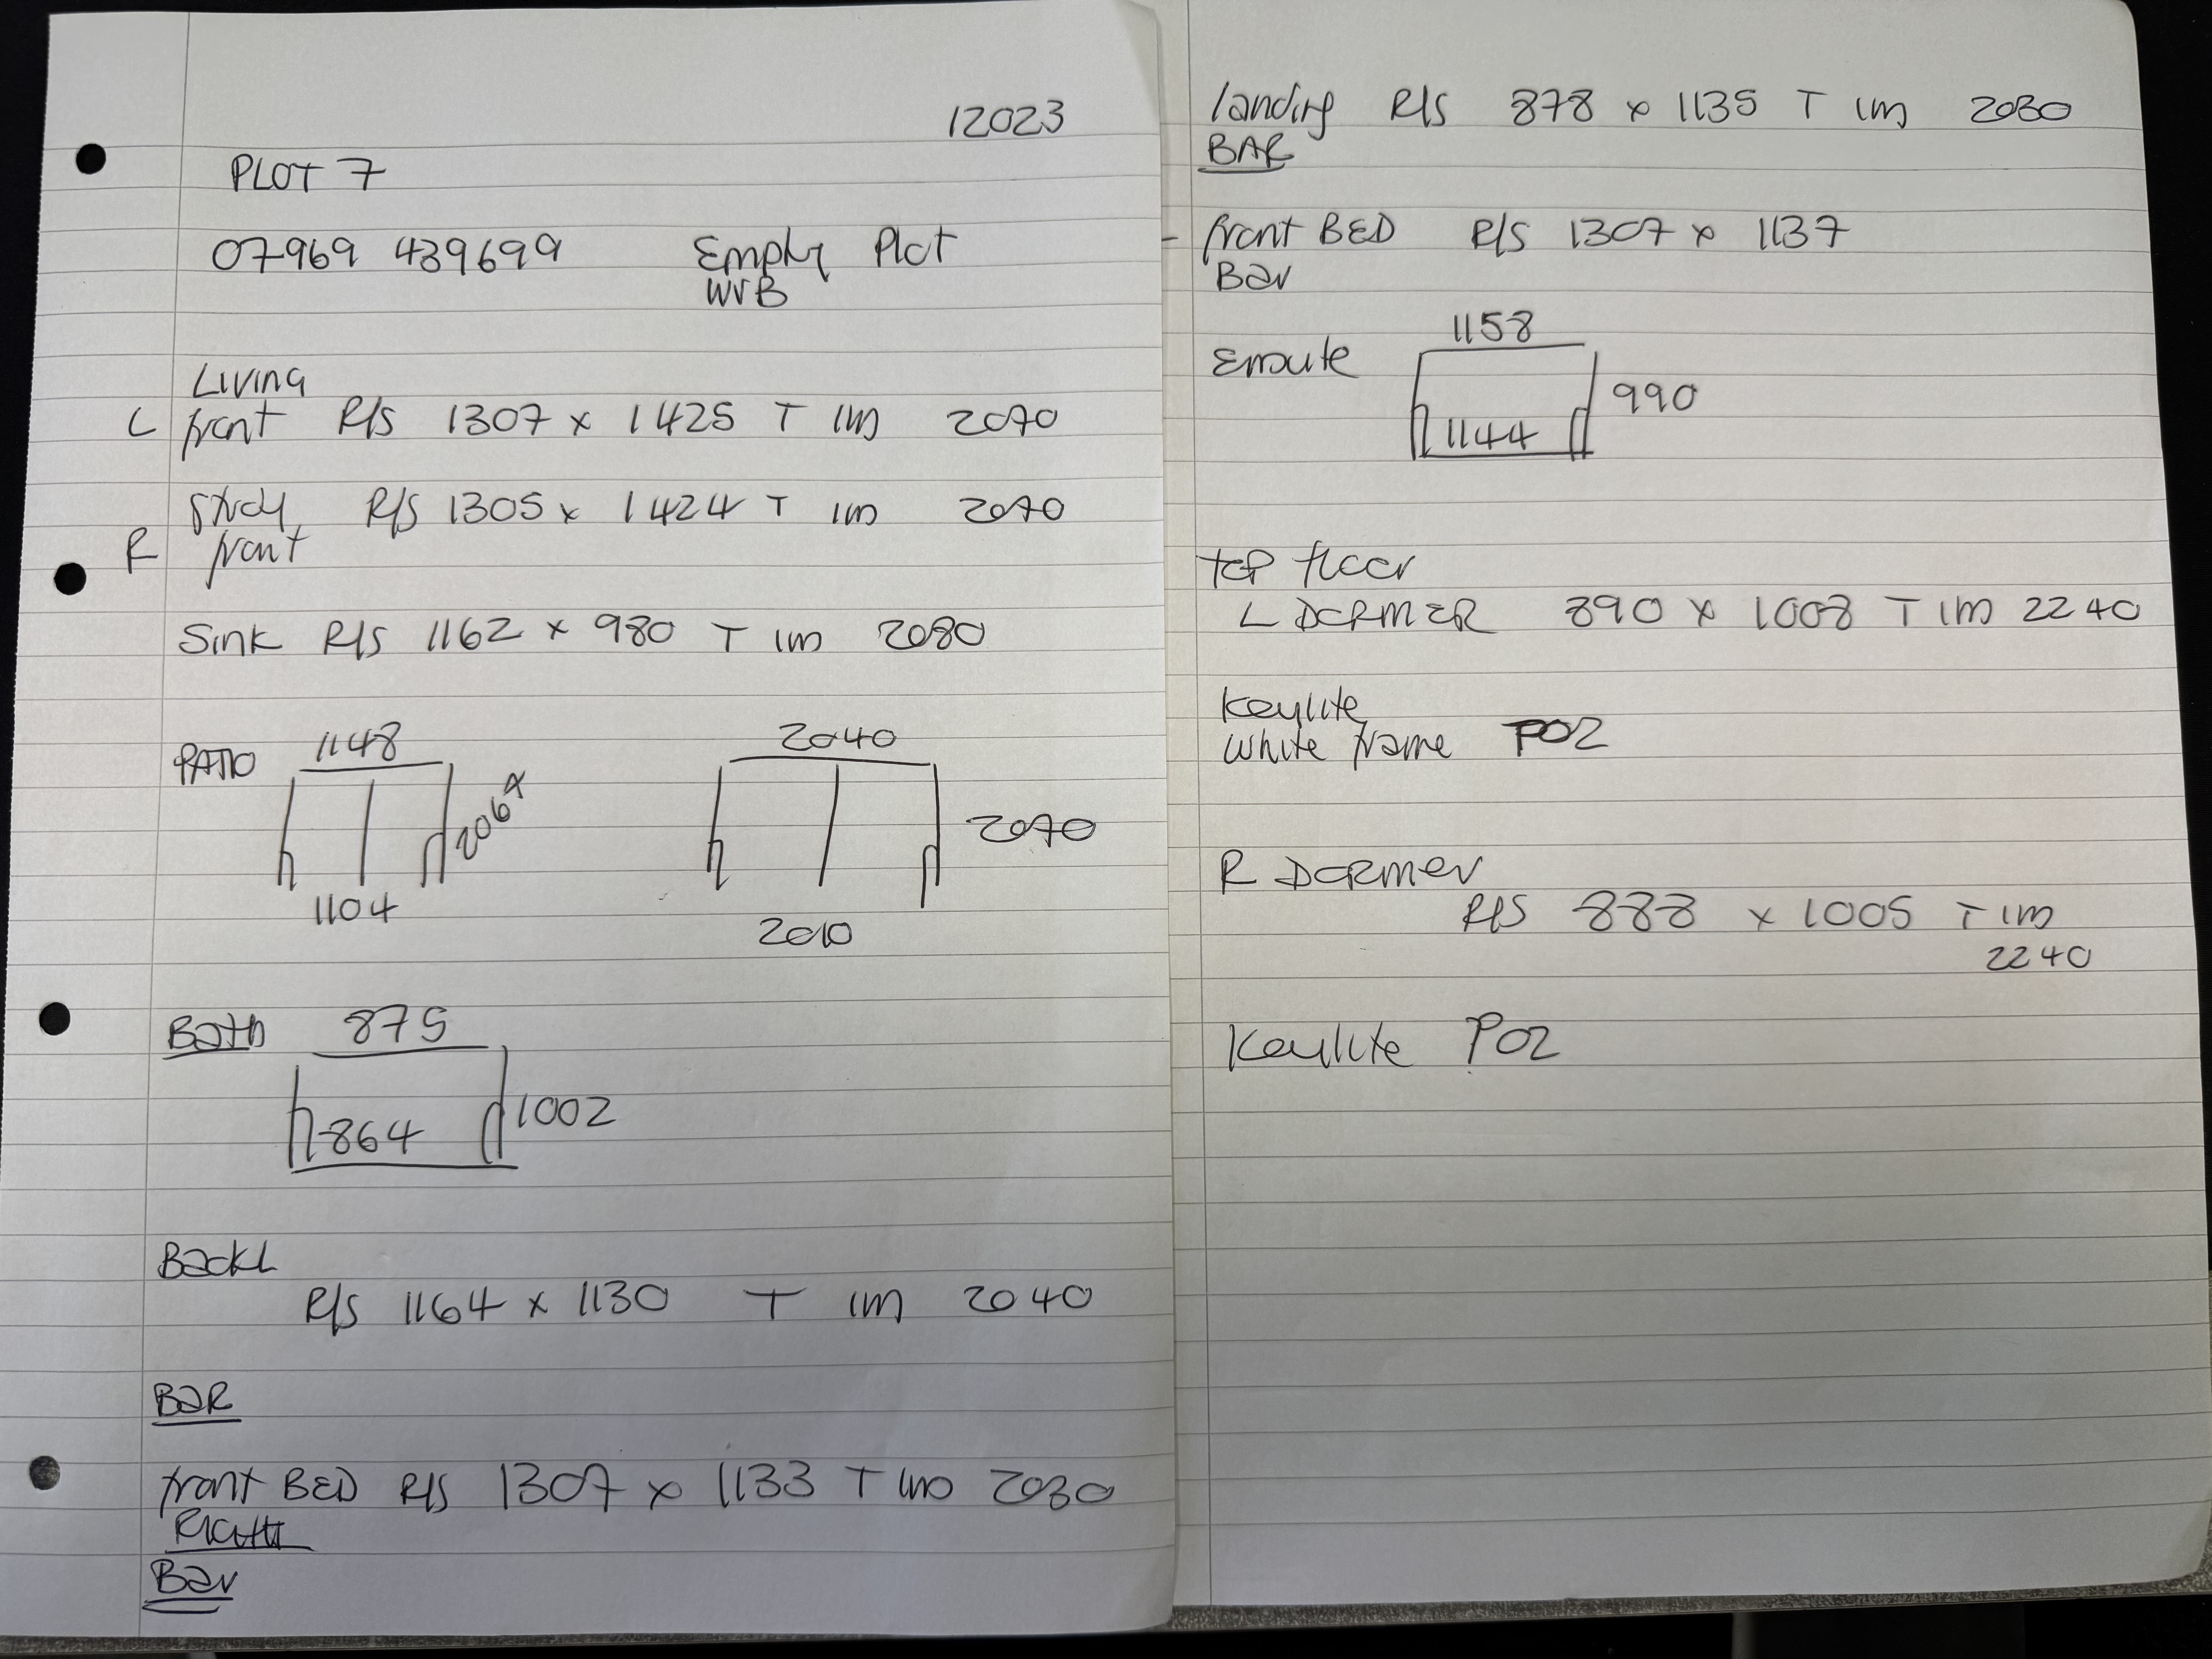 12023
PLOT 7
07969 439699 Empty Plot
WVB
Living
L front R/S 1307 x 1425 T 1m 2070
Study R/S 1305 x 1424 T 1m 2070
R front
Sink R/S 1162 x 980 T 1m 2080
PATIO 1148 2040
206x 2070
1104 2010
Bath 875
864 1002
Back L
R/S 1164 x 1130 T 1m 2040
BaR
front BED R/S 1307 x 1133 T 1m 2030
Right
Bar
landing R/S 878 x 1135 T 1m 2030
BAR
front BED R/S 1307 x 1137
Bar
1158
Ensuite 990
1144
top floor
L DORMER 890 x 1008 T 1m 2240
Keylite
White frame P02
R Dormer
R/S 888 x 1005 T 1m
2240
Keylite P02